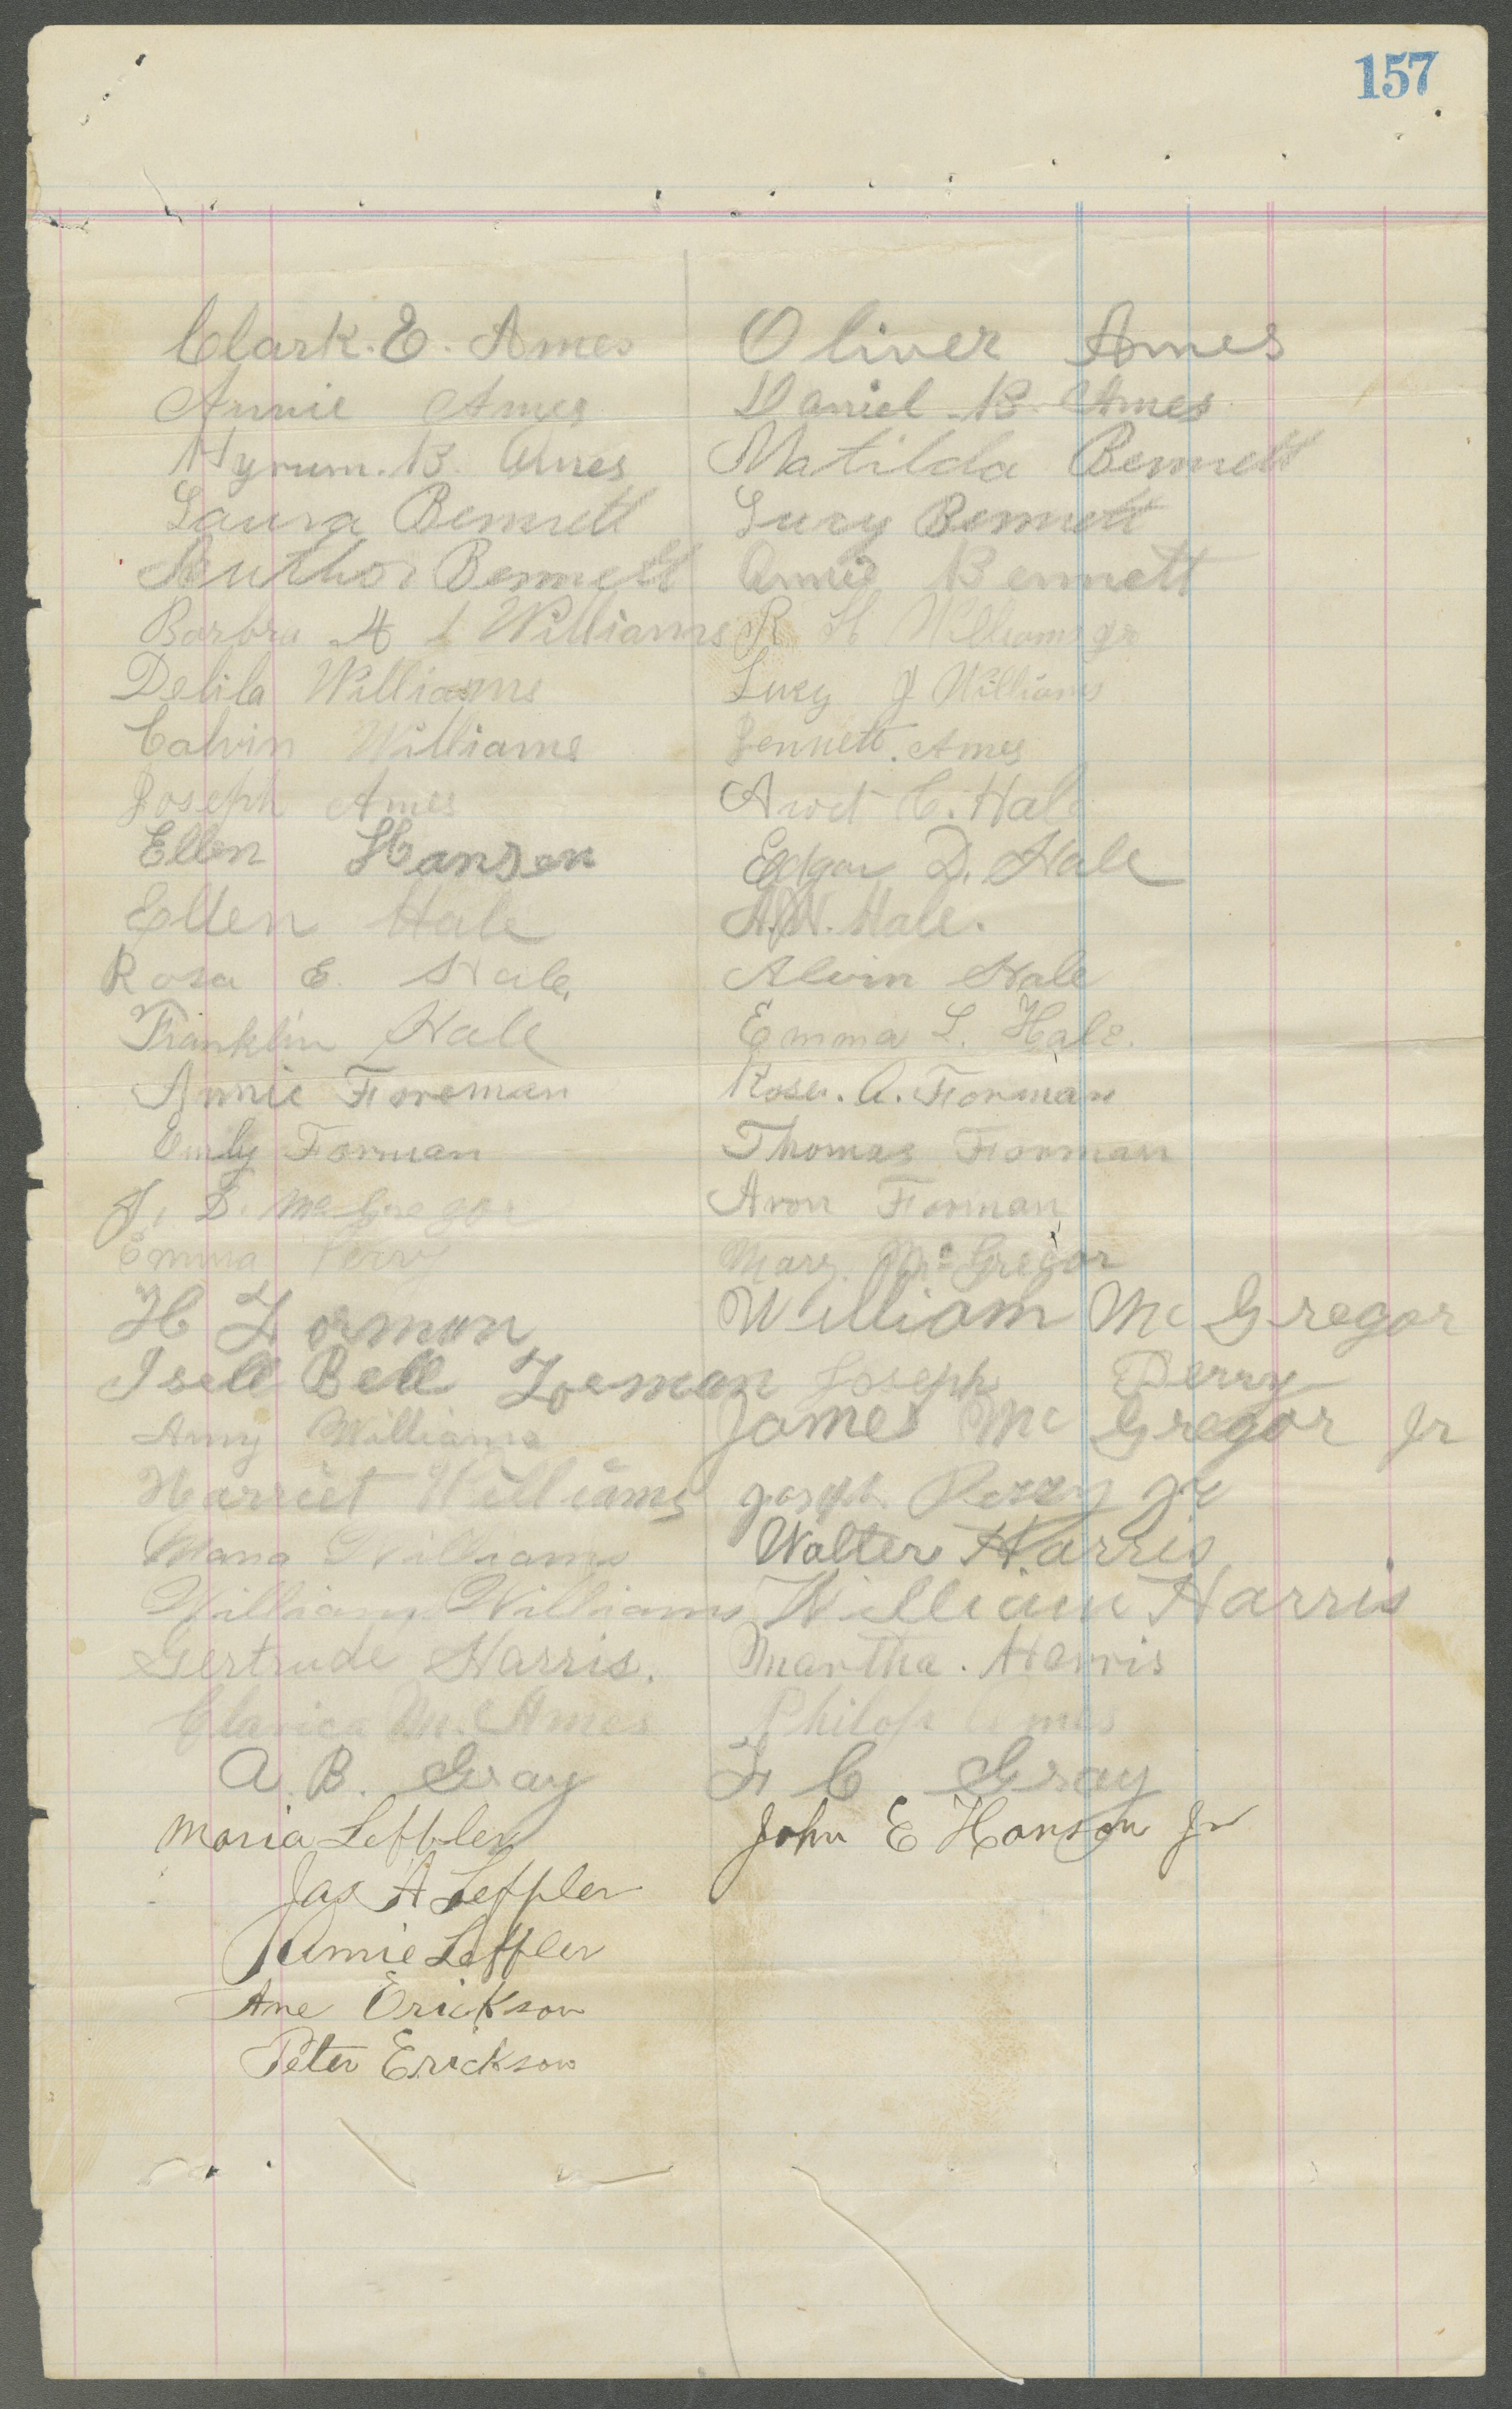 157
Clark. E. Ames
Annie Ames
Hyrum. B. Ames
Laura Bennett
Bennett
Barbra A Williams
Delila Williams
Calvin Williams
Joseph Ames
Ellen Hansen
Ellen Hale
Rosa E. Hale
Franklin Hale
Annie Foreman
Emily Forman
J. D. McGregor
Emma Perry
H Formon
Isell Bell Foeman
Amy Williams
Harriet Williams
Williams
William Williams
Gertrude Harris.
Clarica M. Ames
A. B. Gray
Maria Leffler
Jas A Leffler
Leffler
Ane Erickson
Peter Erickson
Oliver Ames
Daniel B. Ames
Matilda Bennett
Lucy Bennett
Annie Bennett
R H Williams jr
Lucy J Williams
Bennett. Ames
C. Hale
Edgar D. Hale
A. W. Hale.
Alvin Hale
Emma L. Hale.
Rosa. A. Forman
Thomas Forman
Aron Forman
Mary. McGregor
William Mc Gregor
Joseph Perry
James Mc Gregor Jr
Joseph Perry Jr
Walter Harris
William Harris
Martha. Harris
Philop Ames
F C Gray
John E Hanson Jr